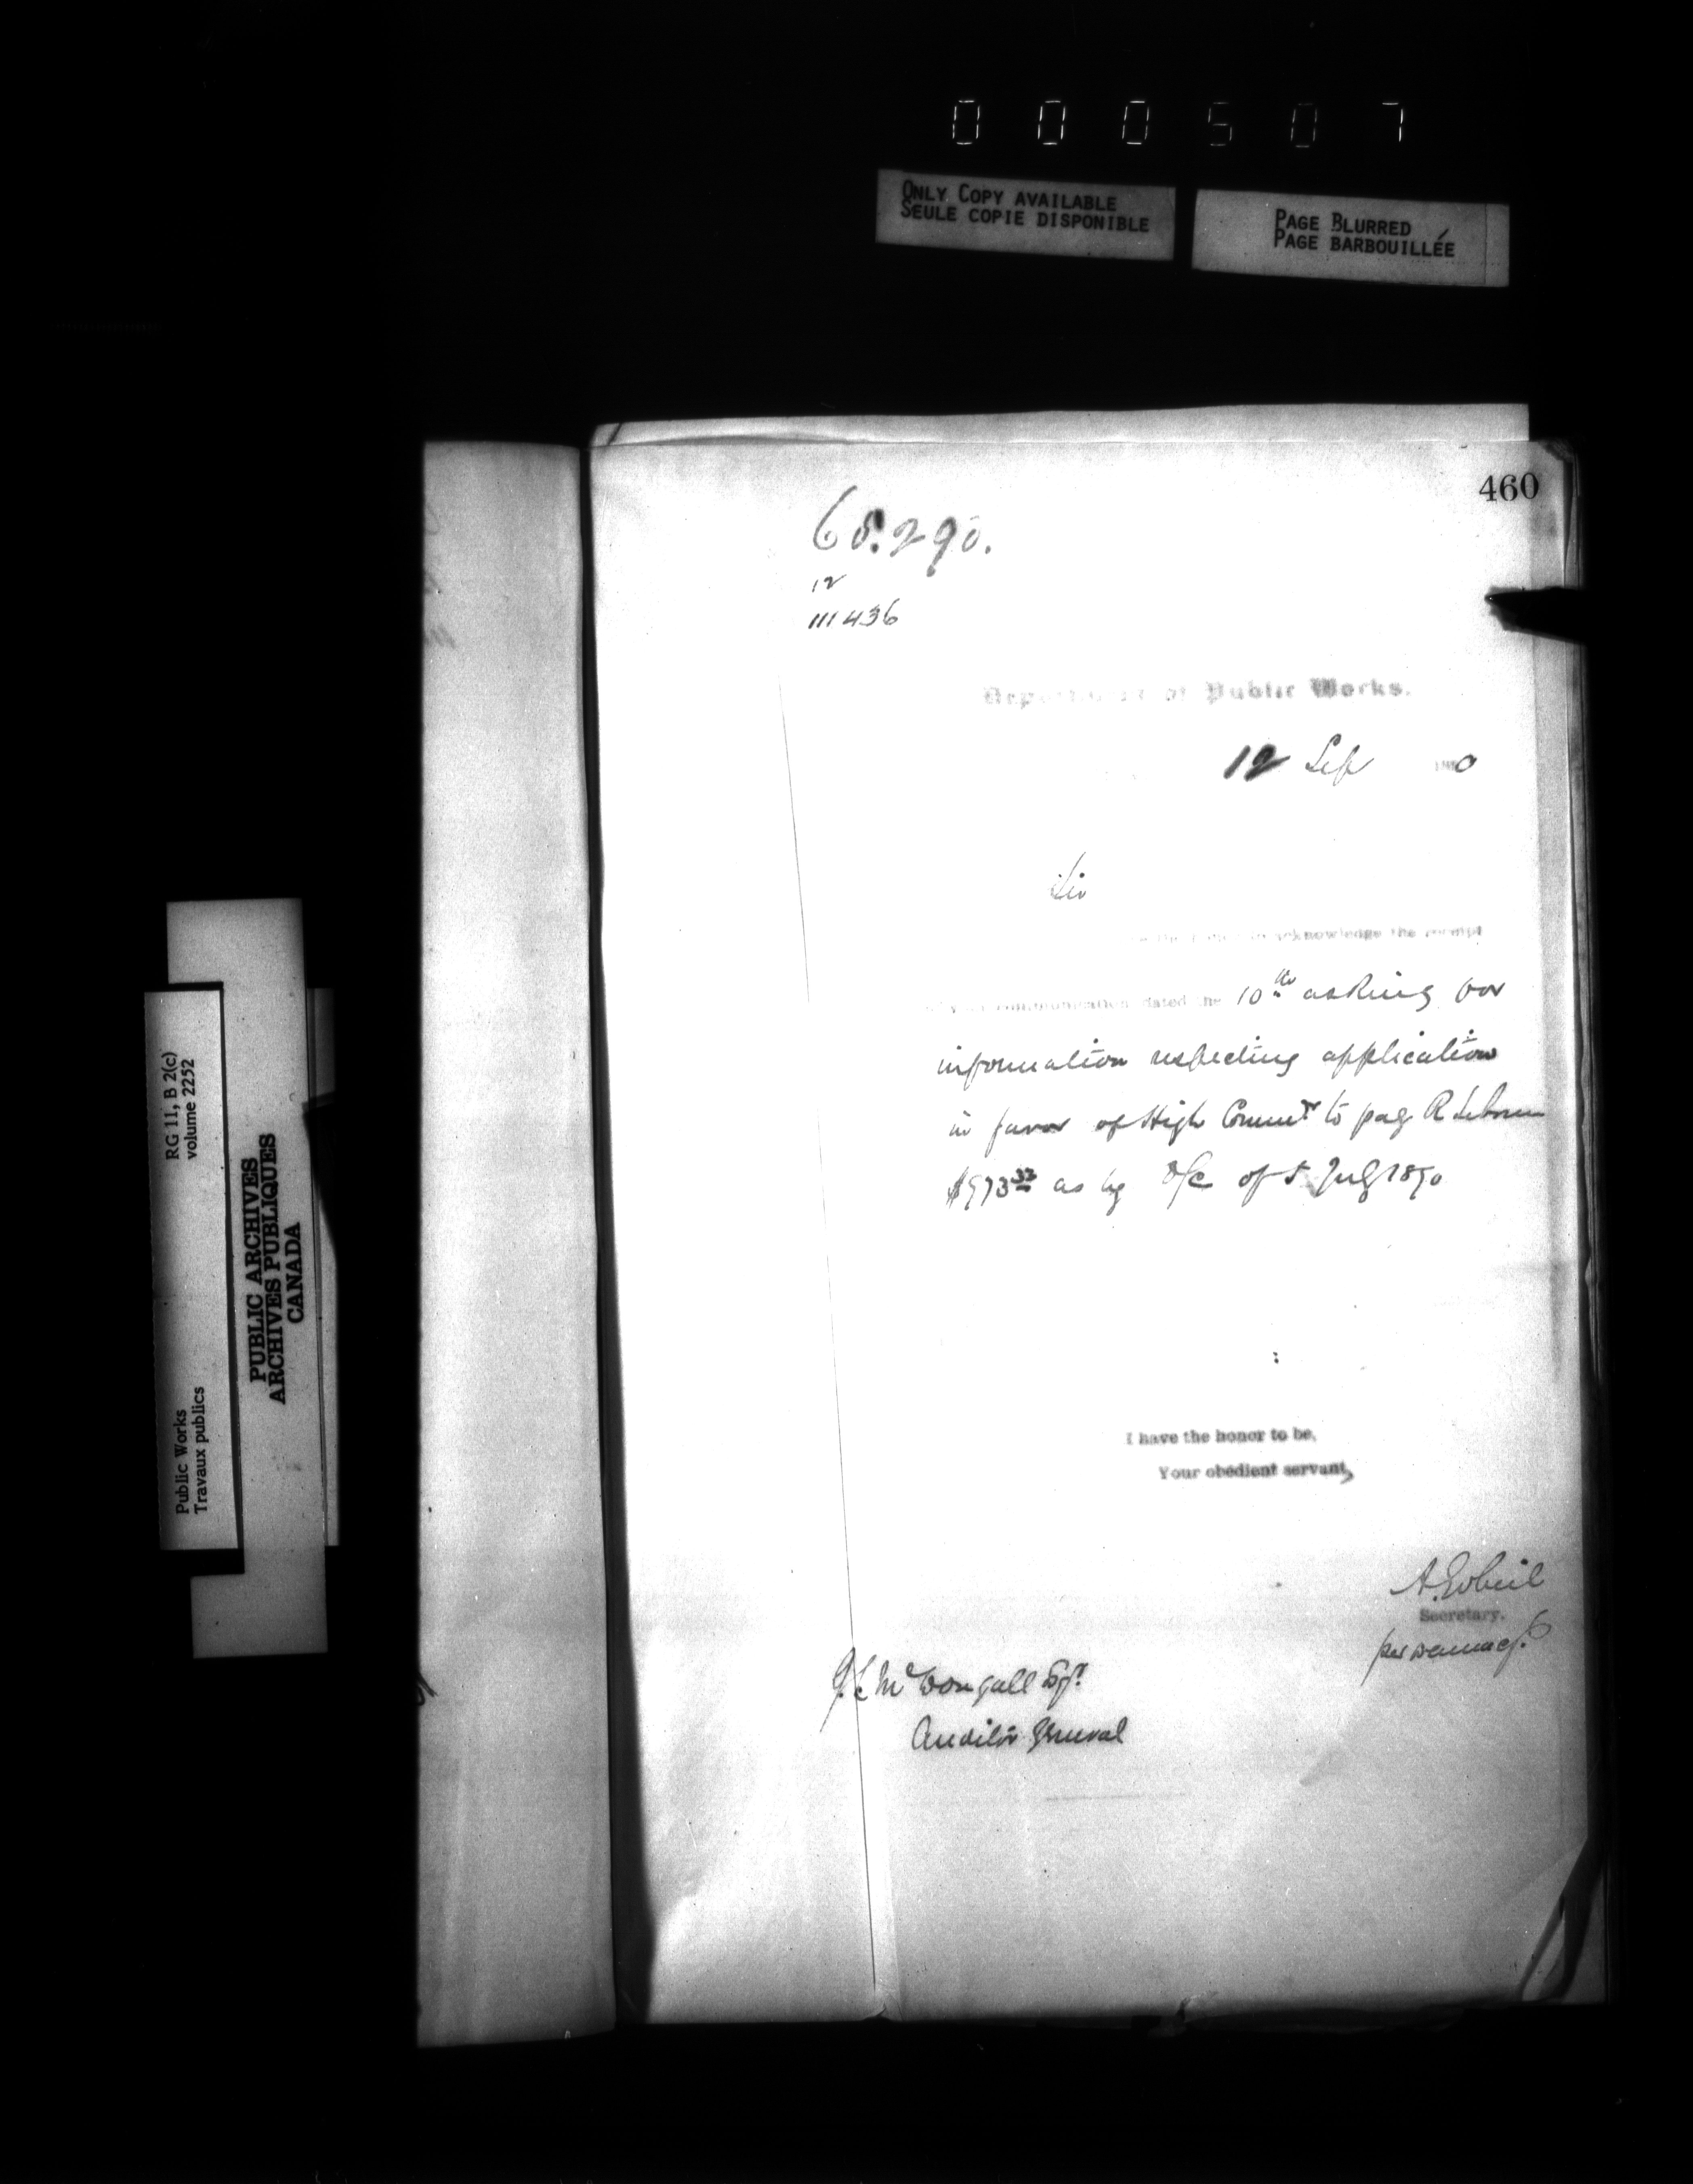 000507
ONLY COPY AVAILABLE
SEULE COPIE DISPONIBLE
PAGE BLURRED
PAGE BARBOUILLÉE
460
68.290.
12
111436
Department of Public Works.
12 Sep 1890
Sir
the honor to acknowledge the receipt
of your communication dated the 10th asking for
information respecting application
in favor of High Commr to pay R
$973.33 as by O/C of 5 July 1890
I have the honor to be,
Your obedient servant,
A. Gobeil
Secretary.
per
J. L. McDougall Esqr.
Auditor General
RG 11, B 2(c)
volume 2252
Public Works
Travaux publics
PUBLIC ARCHIVES
ARCHIVES PUBLIQUES
CANADA